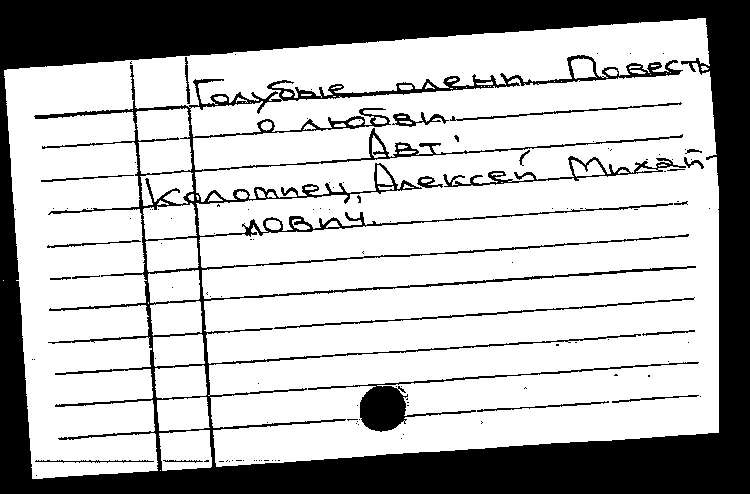 Голубые олени. Повесть
о любви.
Авт:
Коломиец, Алексей Михай-
лович.